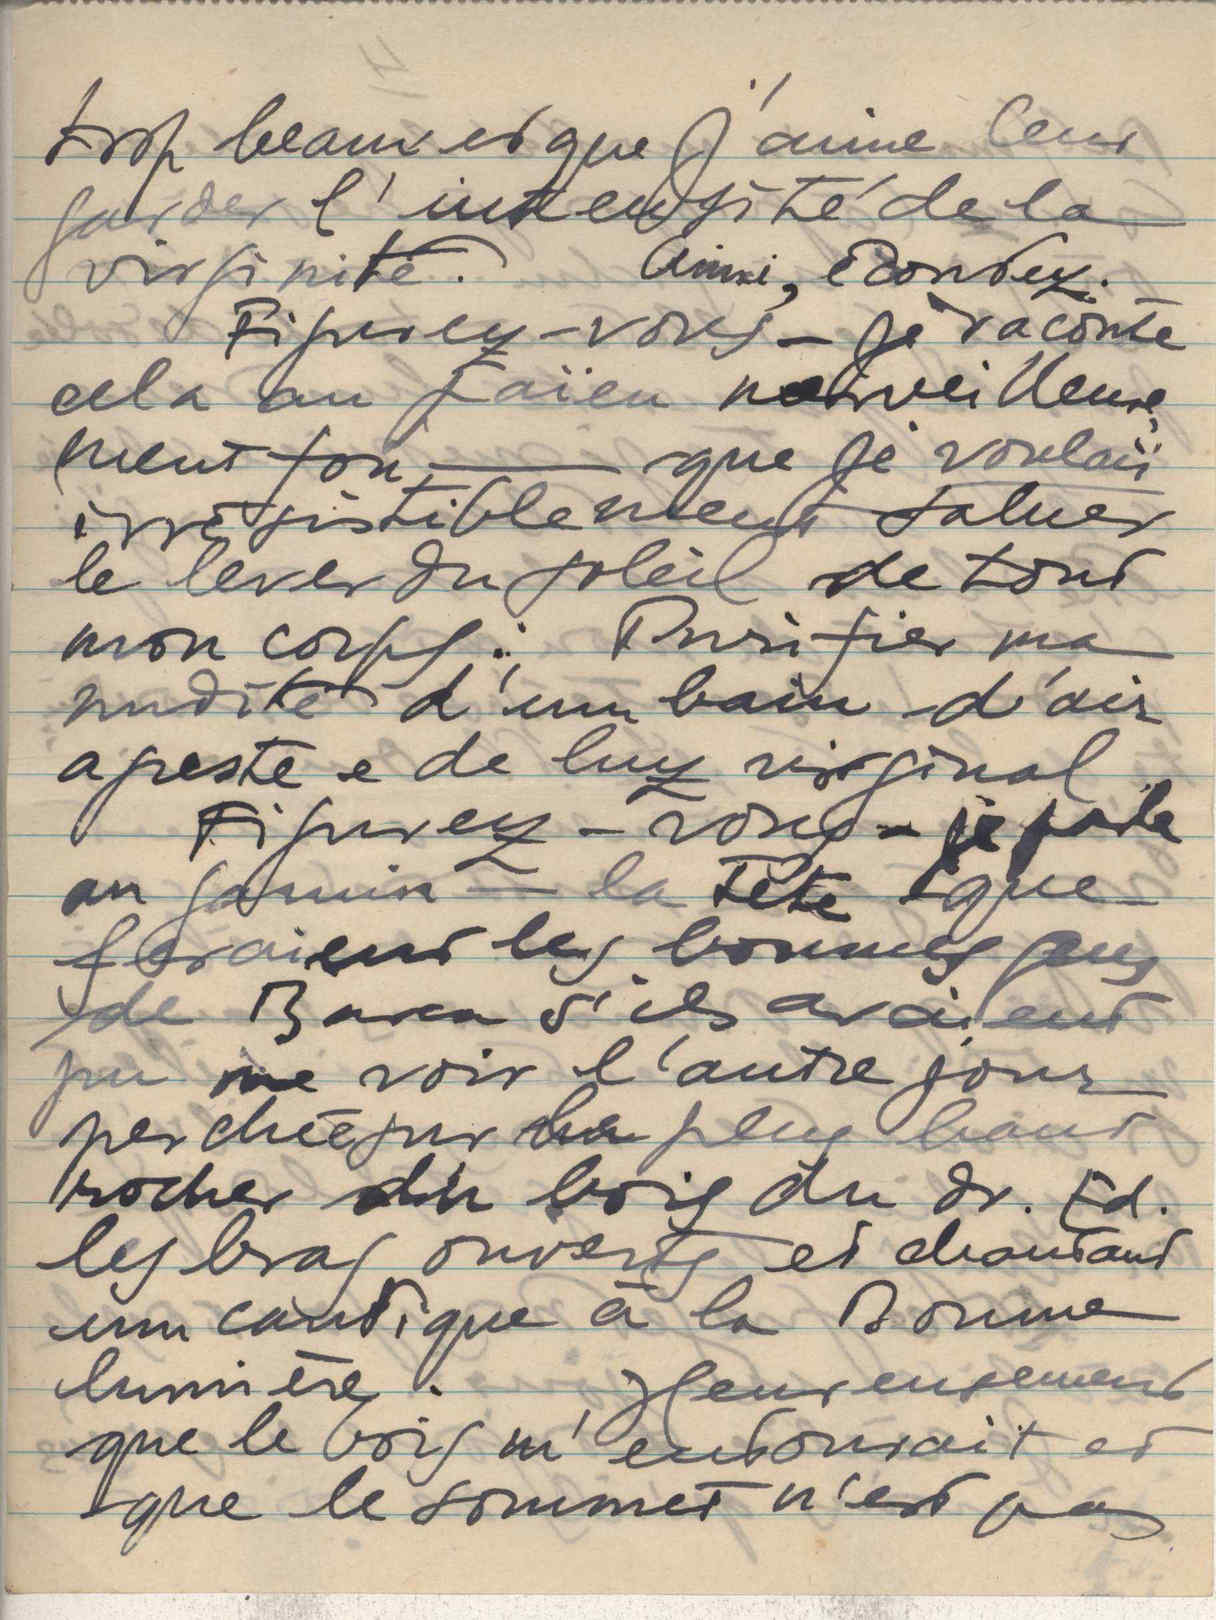 trop beaux et que j'aime leur
garder l'intensité de la
virginité. Ainsi, Ecoutez.
Figurez-vous – je raconte
cela au païen merveilleuse
ment fou, — que je voulais
irrésistiblement saluer
le lever du soleil de tout
mon corps.. Purifier ma
nudité d'un bain d'air
agreste e de luz virginal
Figurez-vous – je parle
au gamin – la tête que
feraient les bonnes gens
de s'ils avaient
pu me voir l'autre jour
perchée sur le plus haut
rocher du bois du dr. Ed.
les bras ouverts et chantant
un cantique à la Bonne
lumière. Heureusement
que le bois m'entourait et
que le sommet n'est pas